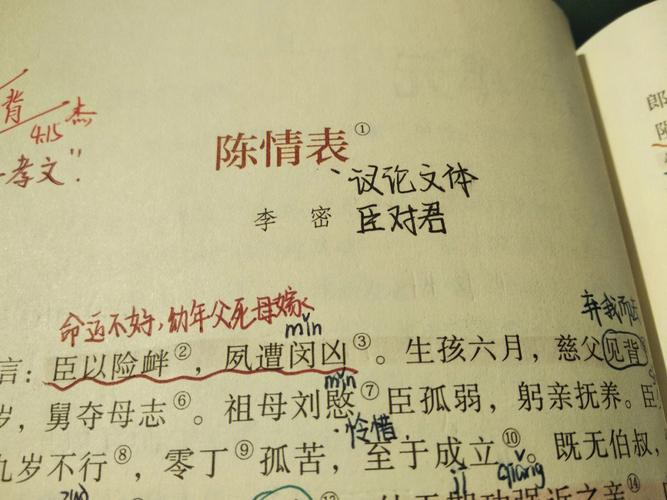 背
4.15 杰
孝文".
陈情表①
议论文体
李 密 臣对君
命运不好,幼年父死母嫁
mǐn
弃我而
言：臣以险衅②，夙遭闵凶③。生孩六月，慈父见背
mǐn
岁，舅夺母志⑥。祖母刘愍⑦臣孤弱，躬亲抚养。臣
怜惜
九岁不行⑧，零丁⑨孤苦，至于成立⑩。既无伯叔，
jī qiǎng
近之亲⑭